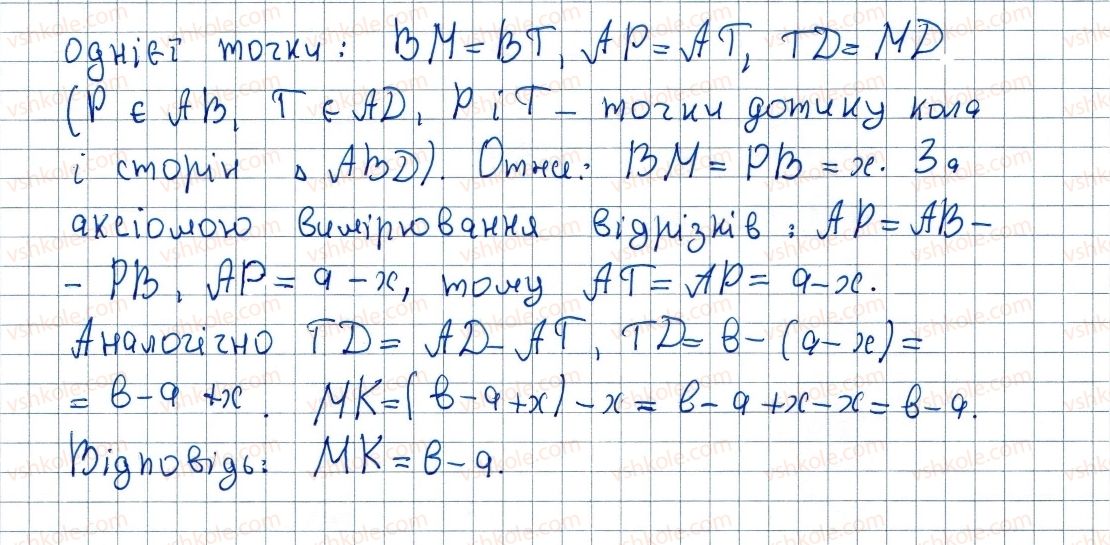 однієї точки: BM = BT, AP = AT, TD = MD
(P є AB, T є AD, P і T – точки дотику кола
і сторін Δ ABD). Отже: BM = PB = x. За
аксіомою вимірювання відрізків: AP = AB –
– PB, AP = a – x, тому AT = AP = a – x.
Аналогічно TD = AD – AT, TD = в – (a – x) =
= в – a + x. MK = (в – a + x) – x = в – a + x – x = в – a.
Відповідь: MK = в – a.